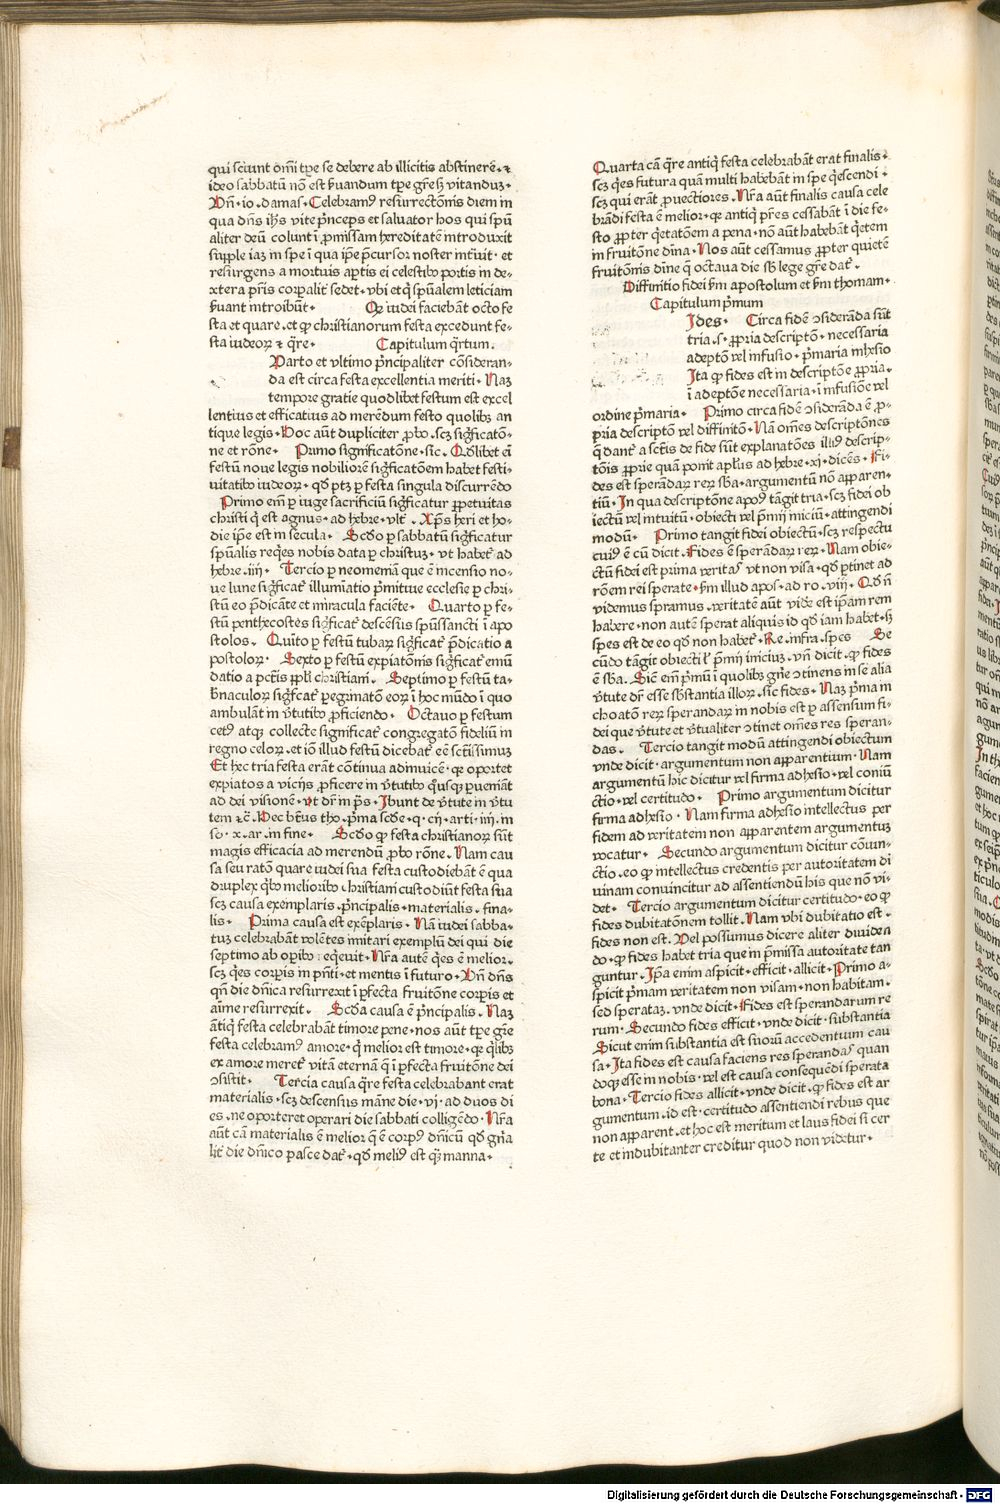 qui sciunt om̄i tp̄e se debere ab illicitis abstinere.⁊
ideo sabbatū nō est s̄uandum tp̄e gr̄e sꝫ vitanduꝫ.
Vn̄.io.damas.Celebramꝰ resurrectōnis diem in
qua dn̄s ih̄s vite pⁱnceps et saluator hos qui spū
aliter deū colunt ī ꝓmissam hereditatē introduxit
supple iaꝫ in spe ī qua ip̄e p̄cursor noster int̄uit.et
resurgens a mortuis aꝑtis ei celestibꝰ portis in de-
xtera pr̄is corꝑalit̄ sedet.vbi et qⁱ spūalem leticiam
s̄uant introibūt. Qꝙ iudei faciebāt octo fe
sta et quare.et ꝙ christianorum festa excedunt fe-
sta iudeoꝝ ⁊ q̄re. Capitulum qr̄tum.
Uarto et vltimo pⁱncipaliter cōsideran-
da est circa festa excellentia meriti. Naꝫ
tempore gratie quodlibet festum est excel
lentius et efficatius ad merēdum festo quolibꝫ an
tique legis.Hoc aūt dupliciter ꝓbo.scꝫ sigⁱficatō-
ne et rōne. Primo significatōne.sic. Qdlibet em̄
festū noue legis nobiliorē sigⁱficatōem habet festi-
uitatibꝰ iudeoꝝ.qd ptꝫ ꝑ festa singula discurrēdo
Primo em̄ ꝑ iuge sacrificiū sigⁱficatur ꝑpetuitas
christi qⁱ est agnus.ad hebre.vlt̄. Xp̄s heri et ho-
die ip̄e est in secula. Scd̄o ꝑ sabbatū sigⁱficatur
spūalis reqⁱes nobis data ꝑ christuꝫ.vt habet̄ ad
hebre.iiij. Tercio ꝑ neomeniā que ē incensio no-
ue lune sigⁱficat̄ illumīatio pⁱmitiue ecclesie ꝑ chri-
stū eo p̄dicāte et miracula faciēte. Quarto ꝑ fe-
stū penthecostes sigⁱficat̄ descēsus spūssancti ī apo
stolos. Quīto ꝑ festū tubaꝝ sigⁱficat̄ p̄dicatio a
postoloꝝ. Sexto ꝑ festū expiatōnis sigⁱficat̄ emū
datio a pctīs ppl̄i christiani. Septimo ꝑ festū ta-
b̄naculoꝝ sigⁱficat̄ peregⁱinatō eoꝝ ī hoc mūdo ī quo
ambulāt in v̄tutibꝰ ꝓficiendo. Octauo ꝑ festum
cetꝰ atqꝫ collecte significat̄ congregatō fideliū in
regno celoꝝ.et iō illud festū dicebat̄ eē sctīssimuꝫ
Et hec tria festa erāt cōtinua adinuicē.qꝛ oportet
expiatos a vicijs ꝓficere in v̄tutibꝰ qⁱusqꝫ ꝑueniāt
ad dei visionē.vt dr̄ in pˢ.Ibunt de v̄tute in v̄tu
tem ⁊c̄.Hec btūs tho.pⁱma scd̄e.q.cij.arti.iiij.in
so.x.ar.in fine. Scd̄o qꝛ festa christianoꝝ sūt
magis efficacia ad merendū ꝓbo rōne. Nam cau
sa seu ratō quare iudei sua festa custodiebāt ē qua
druplex qⁱbꝰ melioribꝰ christiani custodiūt festa sua
scꝫ causa exemplaris.pⁱncipalis.materialis.fina-
lis. Prima causa est exēplaris. Nā iudei sabba-
tuꝫ celebrabāt volētes imitari exemplū dei qui die
septimo ab oꝑibꝰ reqⁱeuit.Nr̄a autē qⁱes ē melior.
scꝫ qⁱes corꝑis in p̄nti.et mentis ī futuro.Vn̄ dn̄s
qn̄ die dn̄ica resurrexit ī ꝑfecta fruitōne corꝑis et
aīme resurrexit. Scd̄a causa ē pⁱncipalis. Naꝫ
ātiqⁱ festa celebrabāt timore pene.nos aūt tꝑe gr̄e
festa celebramꝰ amore.qⁱ melior est timore.qꝛ qⁱlibꝫ
ex amore meret̄ vitā eternā q̄ ī ꝑfecta fruitōne dei
ꝯsistit. Tercia causa q̄re festa celebrabant erat
materialis.scꝫ descensus māne die.vj.ad duos di
es.ne oporteret operari die sabbati colligēdo.Nr̄a
aūt cā materialis ē melior q̄ ē corpꝰ dn̄icū qd gn̄a
lit̄ die dn̄ico pasce dat̄.qd meliꝰ est qꝫ manna.
Quarta cā q̄re antiqⁱ festa celebrabāt erat finalis.
scꝫ qⁱes futura quā multi habebāt in spe qⁱescendi.
scꝫ qui erāt ꝓuectiores.Nr̄a aūt finalis causa cele
brādi festa ē melior.qꝛ antiqⁱ pr̄es cessabāt ī die fe-
sto ꝓpter qⁱetatōem a pena.nō aūt habebāt qⁱetem
in fruitōne diuīa.Nos aūt cessamus ꝓpter quietē
fruitōnis diuīe q̄ octaua die sb̄ lege gr̄e dat̄.
Diffinitio fidei s̄m apostolum et s̄m thomam.
Capitulum pⁱmum
Ides. Circa fidē ꝯsiderāda sūt
tria.s.ꝓpria descriptō.necessaria
adeptō vel infusio.pⁱmaria inhesio
Ita ꝙ fides est in descriptōe ꝓpria.
ī adeptōe necessaria.ī infusiōe vel
ordine pⁱmaria. Primo circa fidē ꝯsiderāda ē ꝓ-
pria descriptō vel diffinitō. Nā om̄es descriptōnes
q̄ dant̄ a sctīs de fide sūt explanatōes illiꝰ descrip-
tōis ꝓprie quā ponit apl̄us ad hebre.xj.dicēs. Fi-
des est sperādaꝝ reꝝ sb̄a.argumentū nō apparen-
tiū.In qua descriptōne apoꝰ tāgit tria.scꝫ fidei ob
iectū vel intuitū.obiecti vel pⁱmij iniciū.attingendi
modū. Primo tangit fidei obiectū.scꝫ respectu
cuiꝰ ē cū dicit.Fides ē sperādaꝝ reꝝ.Nam obie-
ctū fidei est prima veritas vt non visa.qd ꝑtinet ad
rōem rei sperate.s̄m illud apos.ad ro.viij. Qd n̄
videmus speramus.veritatē aūt vide est ip̄am rem
habere.non autē sperat aliquis id qd iam habet.sꝫ
spes est de eo qd non habet̄.Re.infra.spes Se
cūdo tāgit obiecti l̄ pⁱmij iniciuꝫ.vn̄ dicit.ꝙ fides
ē sb̄a. Sic̄ em̄ pⁱmū ī quolibꝫ gn̄e ꝯtinens in se alia
v̄tute dr̄ esse sb̄stantia illoꝝ.sic fides. Naꝫ pⁱma in
choatō reꝝ sperandaꝝ in nobis est ꝑ assensum fi-
dei que v̄tute et v̄tualiter ꝯtinet om̄es res speran-
das. Tercio tangit modū attingendi obiectum
vnde dicit.argumentum non apparentium.Nam
argumentū hic dicitur vel firma adhesio.vel coniū
ctio.vel certitudo. Primo argumentum dicitur
firma adhesio. Nam firma adhesio intellectus per
fidem ad veritatem non apparentem argumentuꝫ
vocatur. Secundo argumentum dicitur cōiun-
ctio.eo ꝙ intellectus credentis per autoritatem di
uinam conuincitur ad assentiendū his que nō vi-
det. Tercio argumentum dicitur certitudo.eo ꝙ
fides dubitatōnem tollit.Nam vbi dubitatio est.
fides non est.Uel possumus dicere aliter diuiden
do.ꝙ fides habet tria que in pⁱmissa autoritate tan
guntur.Ip̄a enim aspicit.efficit.allicit.Primo a-
spicit pⁱmam veritatem non visam.non habitam.
sed sperataꝫ.vnde dicit.Fides est sperandarum re
rum.Secundo fides efficit.vnde dicit.substantia
Sicut enim substantia est suorū accedentium cau
sa.Ita fides est causa faciens res sperandas quan
doqꝫ esse in nobis.vel est causa consequēdi sperata
bona.Tercio fides allicit.vnde dicit.ꝙ fides est ar
gumentum.id est.certitudo assentiendi rebus que
non apparent.et hoc est meritum et laus fidei si cer
te et indubitanter creditur quod non videtur.
Digitalisierung gefördert durch die Deutsche Forschungsgemeinschaft - DFG